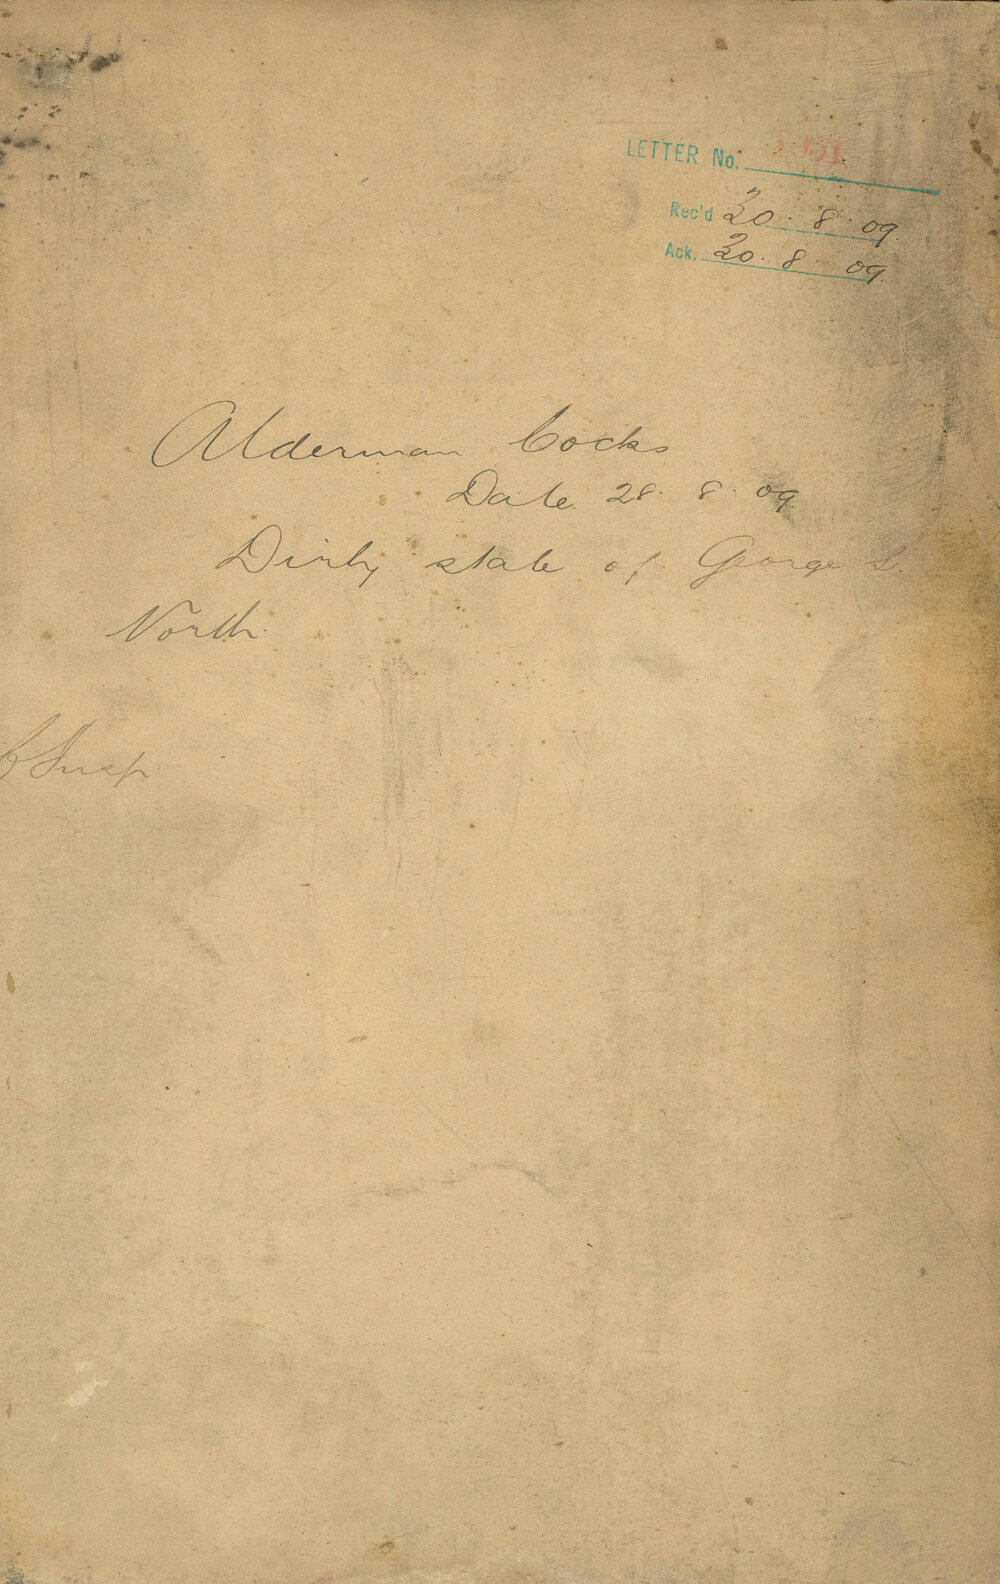 LETTER No.
Rec'd 30. 8. 09.
Ack. 30. 8. 09.
Alderman Cocks
Date 28. 8. 09
Dirty state of George St.
North.
C Insp